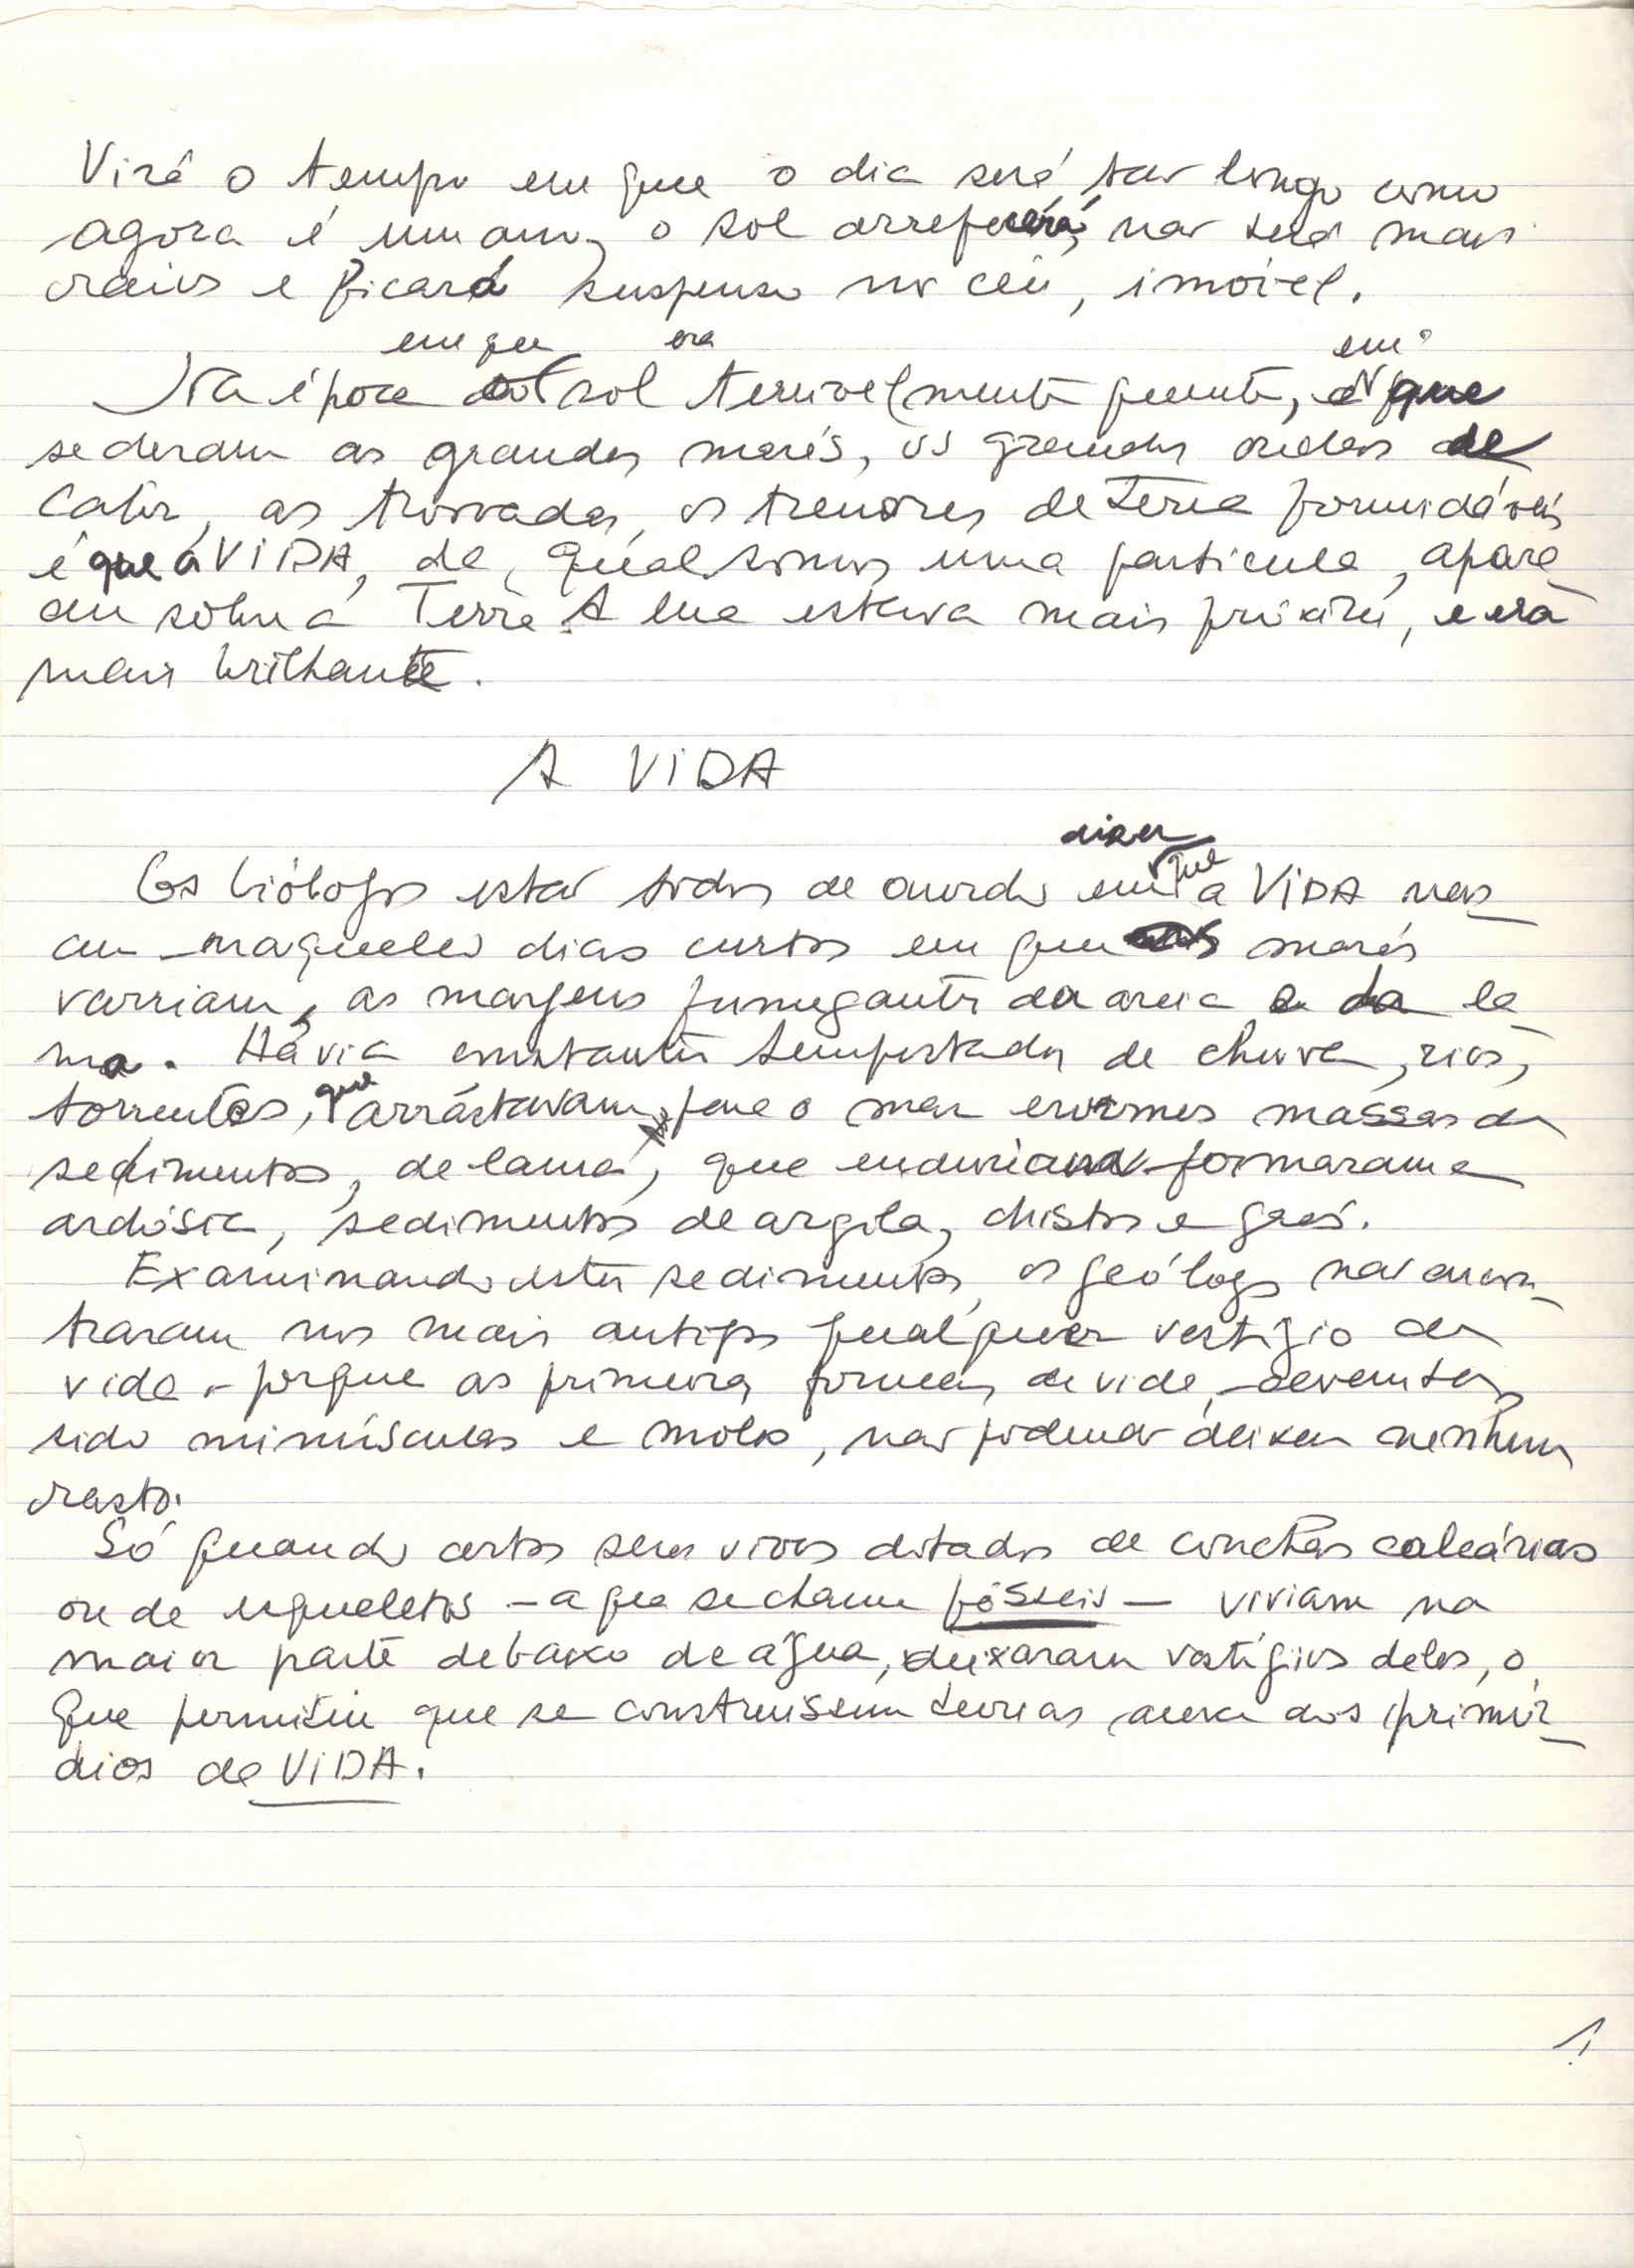 Virá o tempo em que o dia será tão longo como
agora é um ano, o sol arrefecerá, não terá mais
raios e ficará suspenso no céu, imóvel.
em que era em
Na época sol terrivelmente quente, e que
se deram as grandes marés, as grandes ondas de
calor, as trovoadas, os tremores de terra formidáveis
é que a ViDA, da qual somos uma partícula, apare_
ceu sobre a Terra. A lua estava mais próxima, e era
mais brilhante.
A ViDA
dizer
que
Os biólogos estão todos de acordo em a ViDA nas_
ceu naqueles dias curtos em que marés
varriam, as margens fumegantes da areia e da la_
ma. Havia constantes tempestades de chuva, rios,
que
torrentes, arrastavam para o mar enormes massas de
sedimentos, de lama, que endureciam formaram a
ardósia, sedimentos de argila, chistos e grés.
Examinando estes sedimentos, os geólogos não encon_
traram nos mais antigos qualquer vestígio de
vida - porque as primeiras formas de vida, devem ter
sido minúsculas e moles, não podendo deixar nenhum
rasto.
Só quando certos seres vivos dotados de conchas calcárias
ou de esqueletos - a que se chama fósseis - viviam na
maior parte debaixo de água, deixaram vestígios deles, o
que permitiu que se construissem teorias acerca dos primór_
dios da ViDA.
1